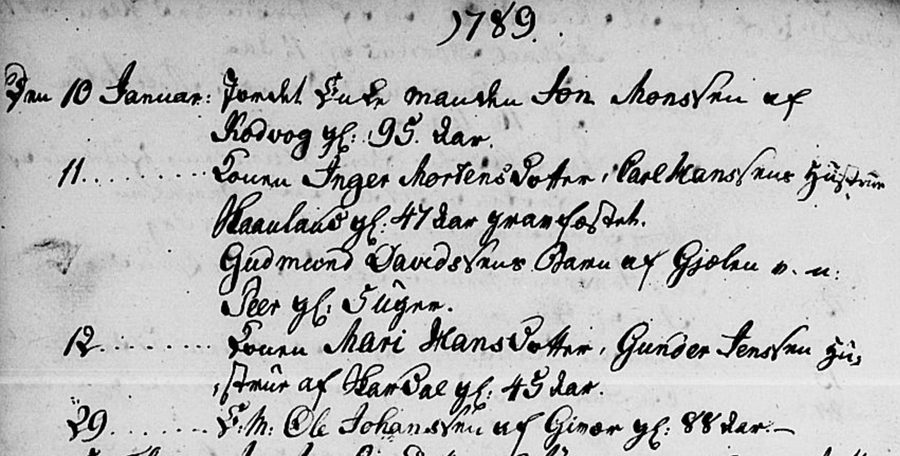 1789.
Den 10 Januar: Jordet Enke manden Jon Monssen af
Rodvog gl: 95. Aar.
11......... Konen Inger Mortens Dotter, Carl Hanssens Hustrue
gl: 47 Aar gravfæstet.
Gudmund Davidssens Barn af Gjælen v. n:
Peer gl: 5 Uger.
12........ Konen Mari Hans Dotter, Gunder Jenssen Hu,,
,,strue af gl: 45 Aar.
29....... E: M: Ole Johanssen af Givær gl: 88 Aar.—